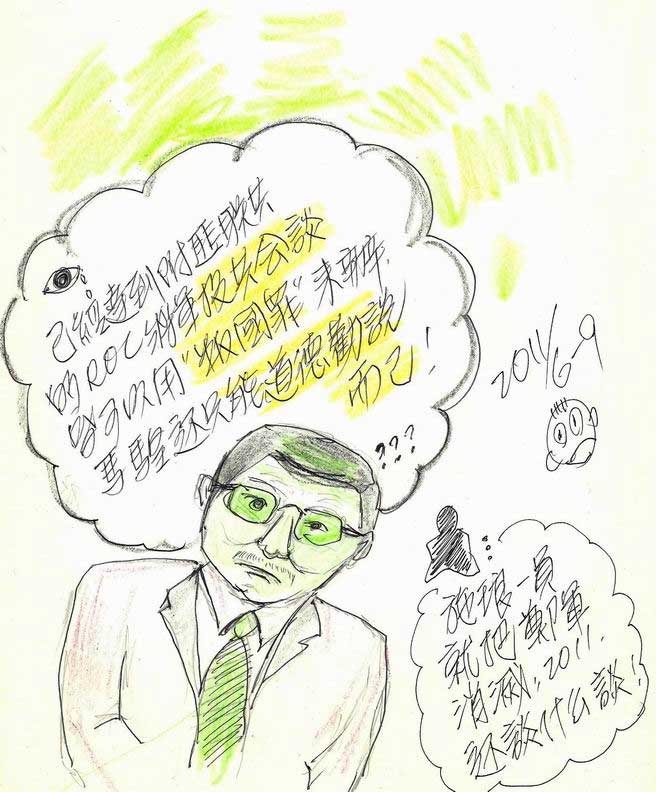 已經達到附匪聯共
的ROC將軍投共会談
皆可以用"叛國罪"来辦.
馬騜还只能道德勸說
而已！
???
2011/6-9
施琅一員
就把鄭軍
消滅，2011.
还談什么談！